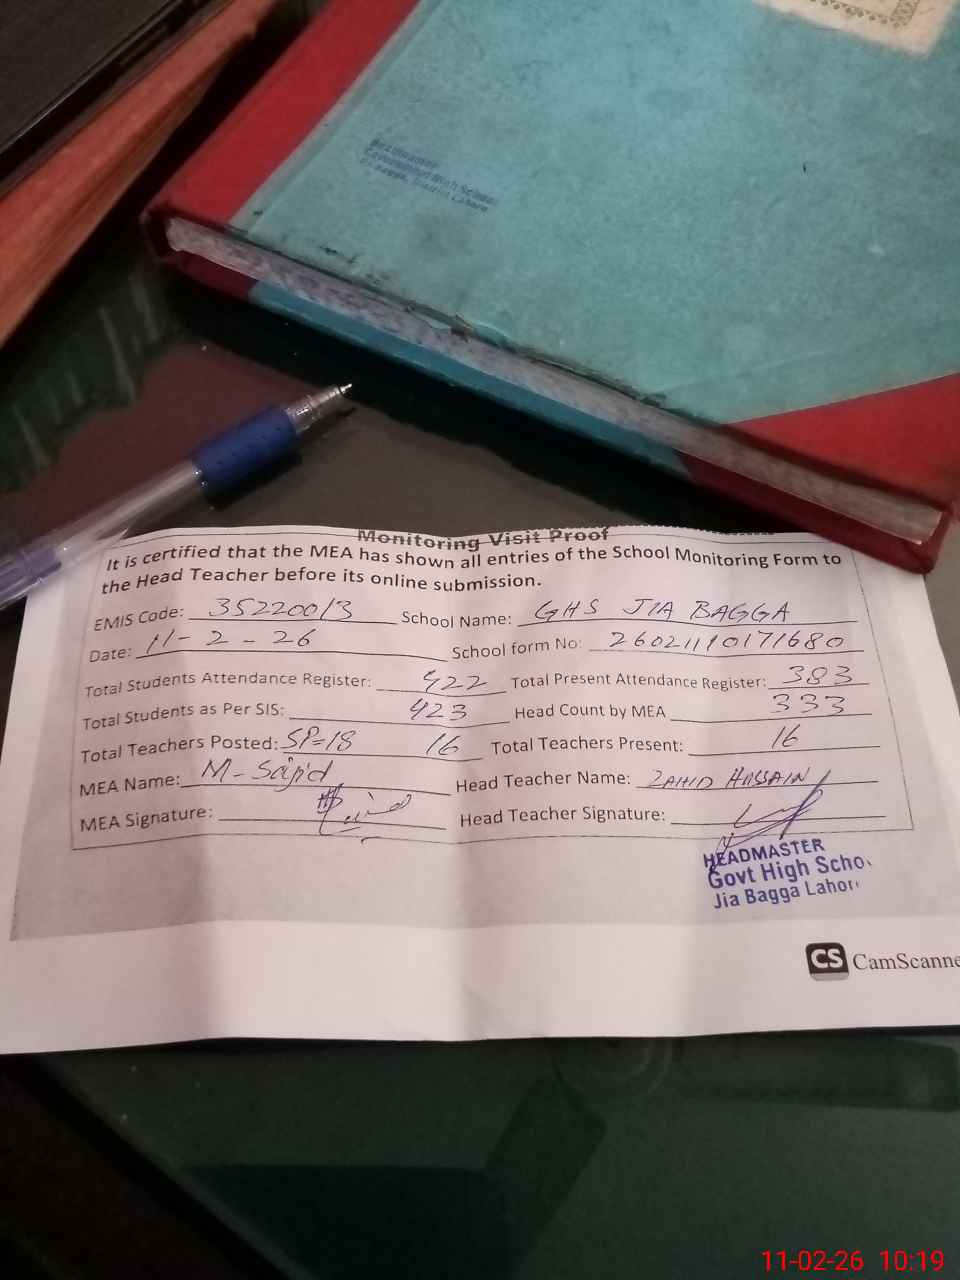 Headmaster
Government High School
District Lahore
Monitoring Visit Proof
It is certified that the MEA has shown all entries of the School Monitoring Form to
the Head Teacher before its online submission.
EMIS Code: 35220013 School Name: GHS JIA BAGGA
Date: 11-2-26 School form No: 26021110171680
Total Students Attendance Register: 422 Total Present Attendance Register: 383
Total Students as Per SIS: 423 Head Count by MEA 333
Total Teachers Posted: SP=18 16 Total Teachers Present: 16
MEA Name: M-Sajid Head Teacher Name: ZAHID HUSSAIN
MEA Signature: Head Teacher Signature:
HEADMASTER
Govt High Schoo
Jia Bagga Lahore
CS CamScanne
11-02-26 10:19